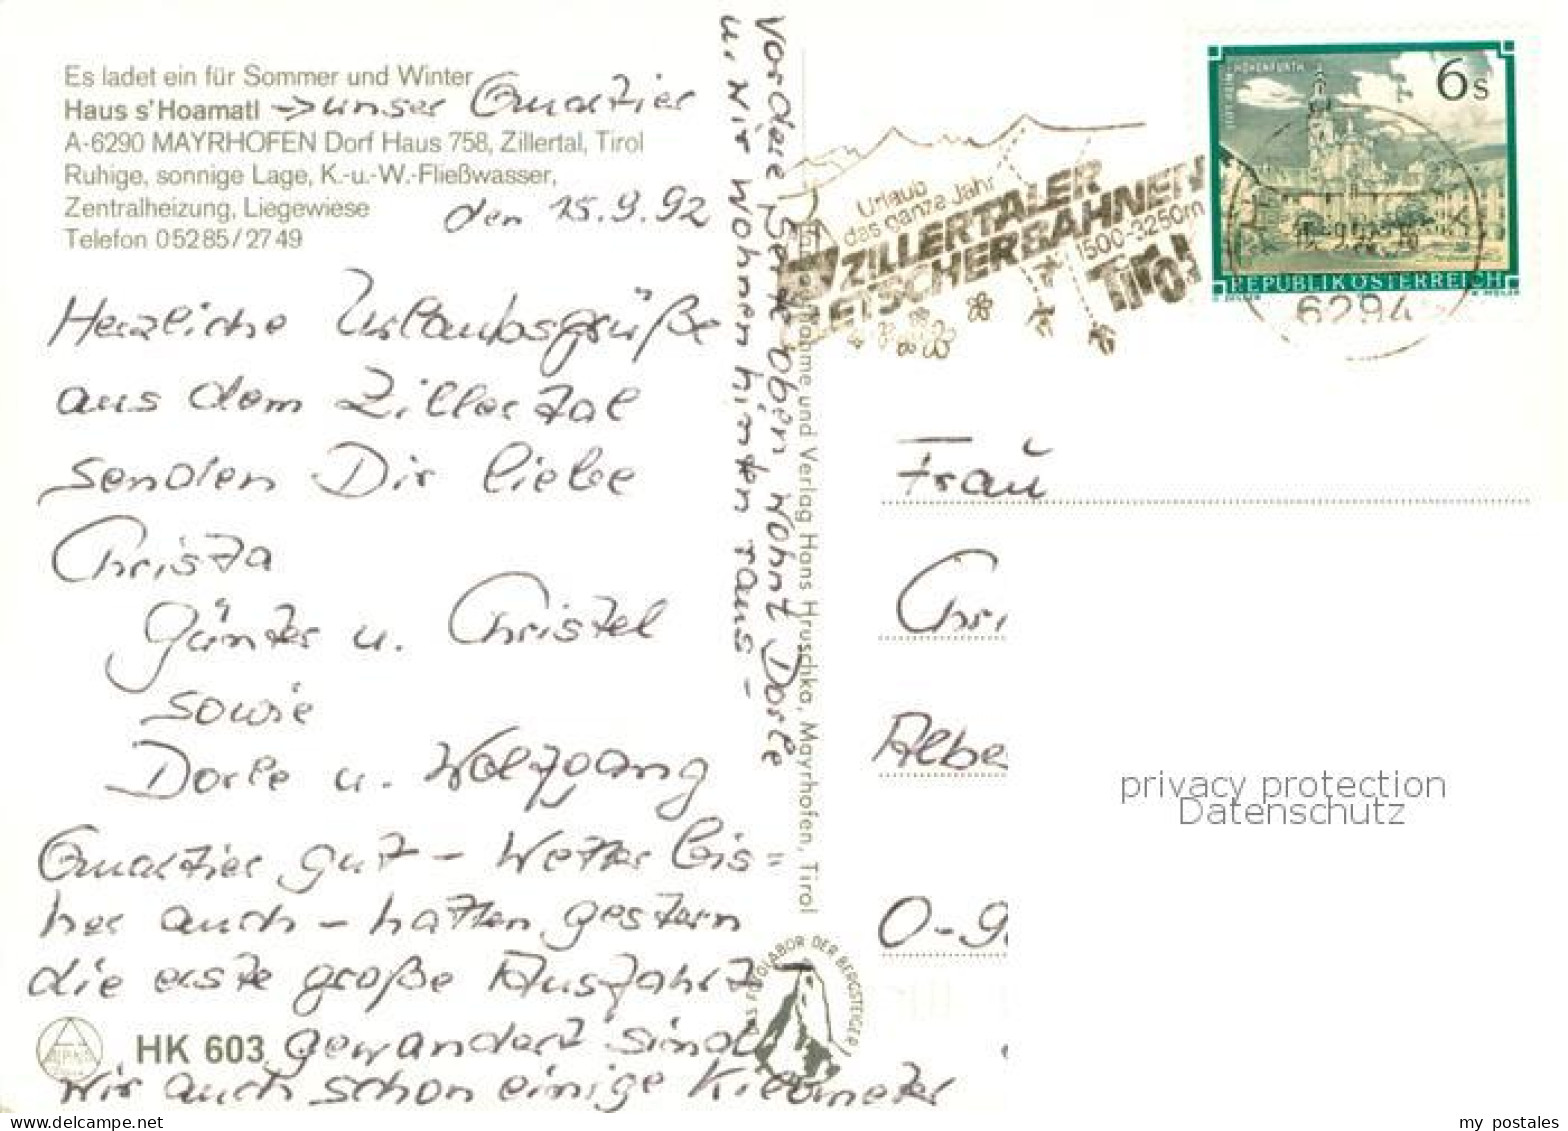 Es ladet ein für Sommer und Winter
Haus s'Hoamatl → unser Quartier
A-6290 MAYRHOFEN Dorf Haus 758, Zillertal, Tirol
Ruhige, sonnige Lage, K.-u.-W.-Fließwasser,
Zentralheizung, Liegewiese
Telefon 05285/2749
den 15.9.92
Herzliche Urlaubsgrüße
aus dem Zillertal
senden Dir liebe
Christa
Günter u. Christel
sowie
Dorle u. Wolfgang
Quartier gut – Wetter bis=
her auch – hatten gestern
die erste große Ausfahrt –
gewandert sind
wir auch schon einige Kilometer
HK 603
ALPKO
vordere Seite oben wohnt Dorle
u. wir wohnen hinten raus –
Aufnahme und Verlag Hans Hruschka, Mayrhofen, Tirol
DAS FOTOLABOR DER BERGSTEIGER
Urlaub
das ganze Jahr
ZILLERTALER
GLETSCHERBAHNEN
1500-3250m
Tirol
STIFT REIN-HOHENFURTH
6s
REPUBLIK ÖSTERREICH
6294
Frau
Chri
Albe
O-9
privacy protection
Datenschutz
my postales